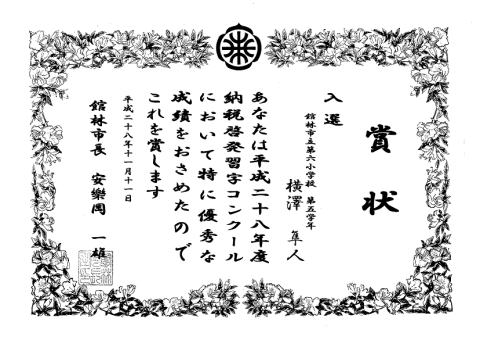 賞状
入選
館林市立第六小学校 第五学年
横澤 隼人
あなたは平成二十八年度
納税啓発習字コンクール
において特に優秀な
成績をおさめたので
これを賞します
平成二十八年十一月十一日
館林市長 安樂岡 一雄